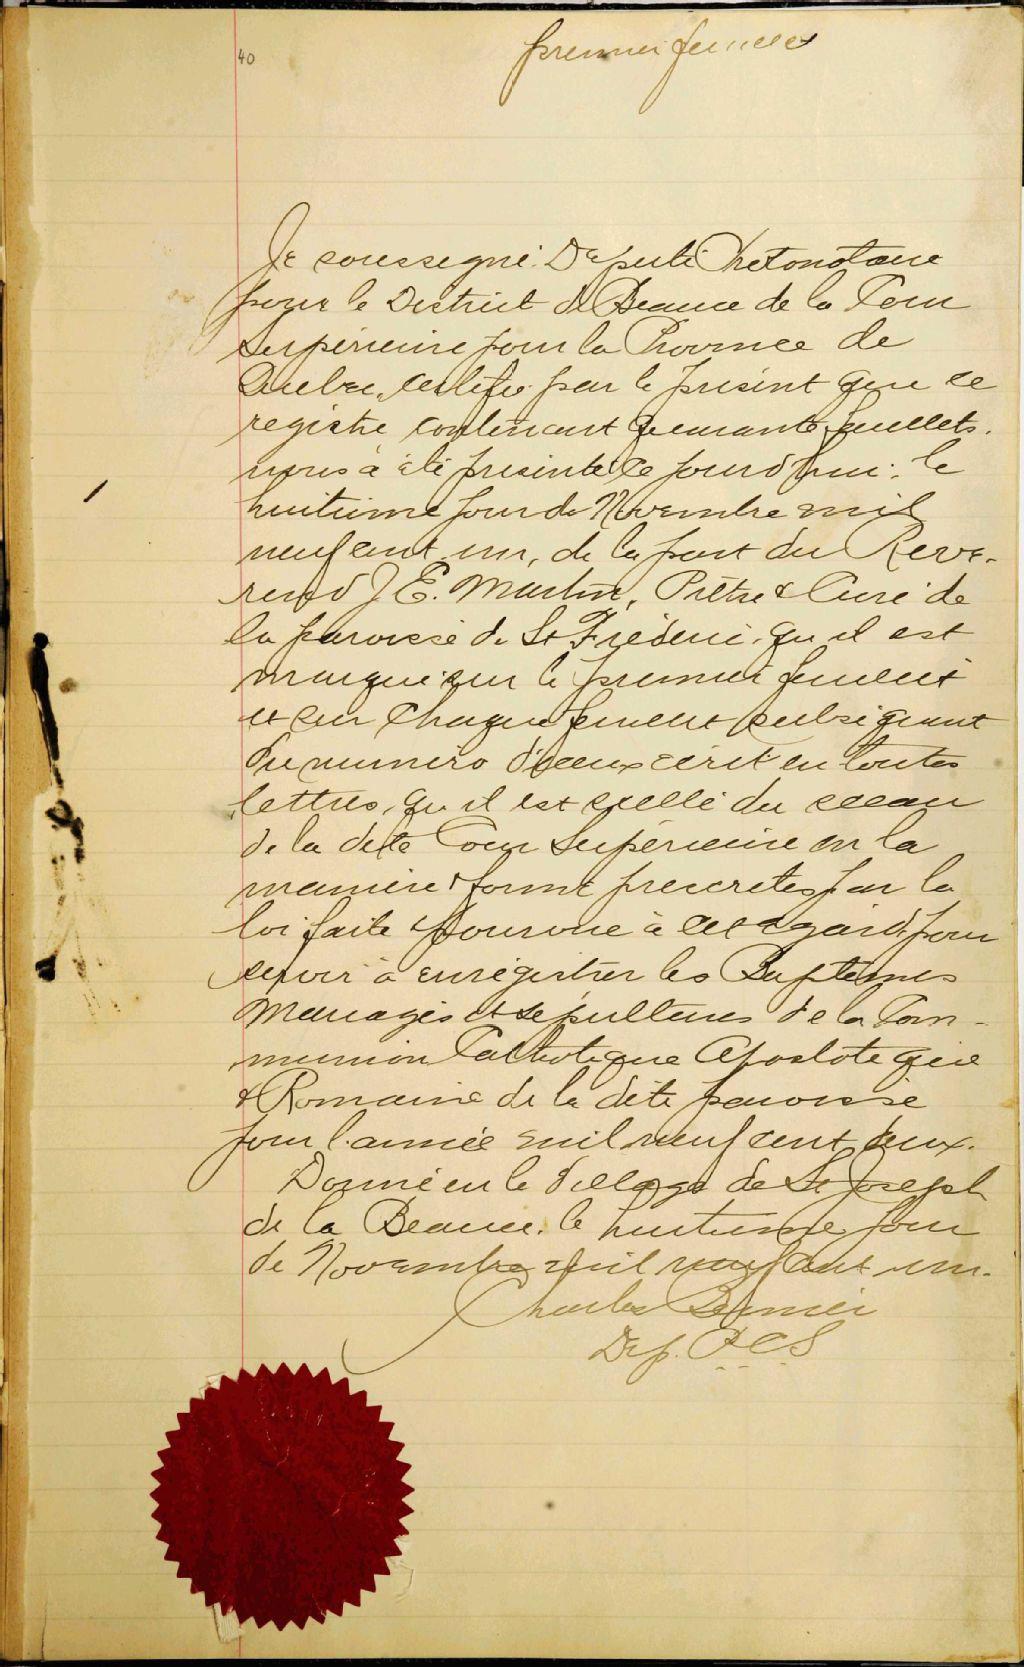 40
premier feuillet
Je soussigné Député Protonotaire
pour le District de Beauce de la Cour
Supérieure pour la Province de
Québec, certifie par le présent que ce
registre contenant quarante feuillets.
nous à été présenté ce jourd'hui: le
huitième jour de Novembre mil
neuf cent un, de la part du Reve-
rend J. E. Martin, Prêtre & Curé de
la paroisse de St Fréderic, qu il est
marqué sur le premier feuillet
et sur chaque feuillet subséquent
du numéro d'iceux écrit en toutes
lettres, qu il est scellé du sceau
de la dite Cour Supérieure en la
manière & forme prescrites par la
loi faite & pourvue à cet égard, pour
servir à enrégistrer les Baptêmes
Mariages et sépultures de la Com-
munion Catholique Apostolique
& Romaine de la dite paroisse
pour l'année mil neuf cent deux.
Donné en le village de St Joseph
de la Beauce, le huitième jour
de Novembre mil neuf cent un.
Charles Bernier
Dep. P C S